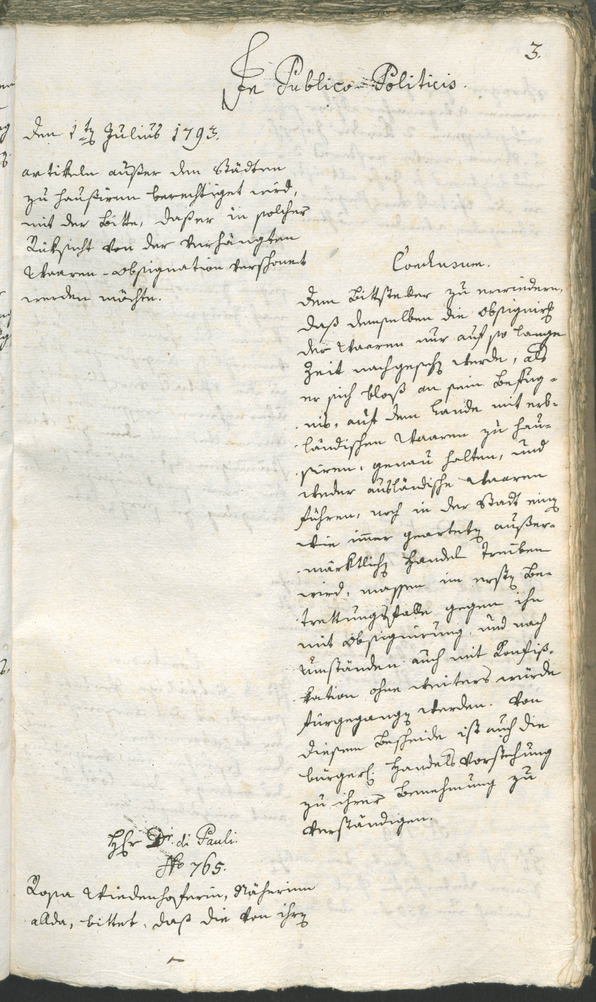 3.
In Publico-Politicis.
den 1t. Julius 1793.
artikeln außer den Städten
zu hausiren berechtiget wird,
mit der Bitte, daß er in solcher
Rüksicht von der verhängten
Waaren-Obsignation verschonet
werden möchte.
Conclusum.
dem Bittsteller zu erwiedern,
daß demselben die Obsignirg
der Waaren nur auf so lange
Zeit nachgesehn werde, als
er sich bloß an sein Befug-
nis, auf dem Lande mit erb-
ländischen Waaren zu hau-
siren, genau halten, und
weder ausländische Waaren
führen, noch in der Stadt einen
wie immer gearteten außer-
märktlichen Handel treiben
wird, massen im ersten Be-
trettungsfalle gegen ihn
mit Obsignirung, und nach
Umständen auch mit Konfis-
kation ohne weiters würde
fürgegangen werden. Von
diesem Bescheide ist auch die
bürgerl. Handelsvorstehung
zu ihrer Benehmung zu
verständigen.
Hr Dr. di Pauli
No 765.
Rosa Wiedenhoferin, Näherinn
allda, bittet, daß die von ihrem